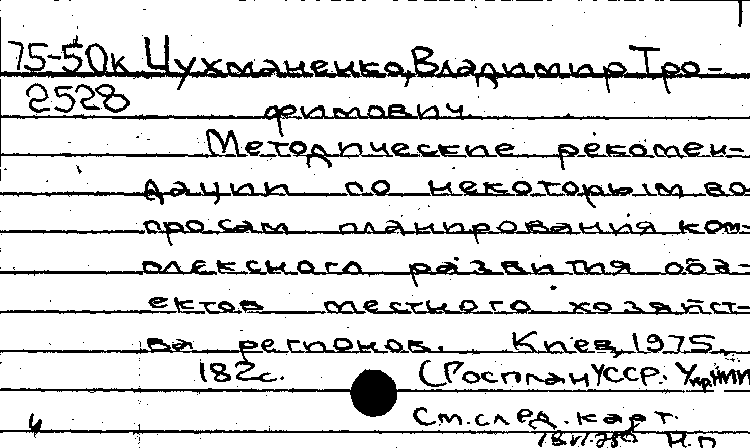 75-50к Цухманенко, Владимир Тро-
2528 фимович
Методические рекомен-
дации по некоторым во
просам планирования ком-
плексного развития объ-
ектов местного хозяйст-
ва регионов. Киев, 1975.
182с. (Госплан УССР. Укр.НИИ
См.след.карт.
18.VI. Н.П